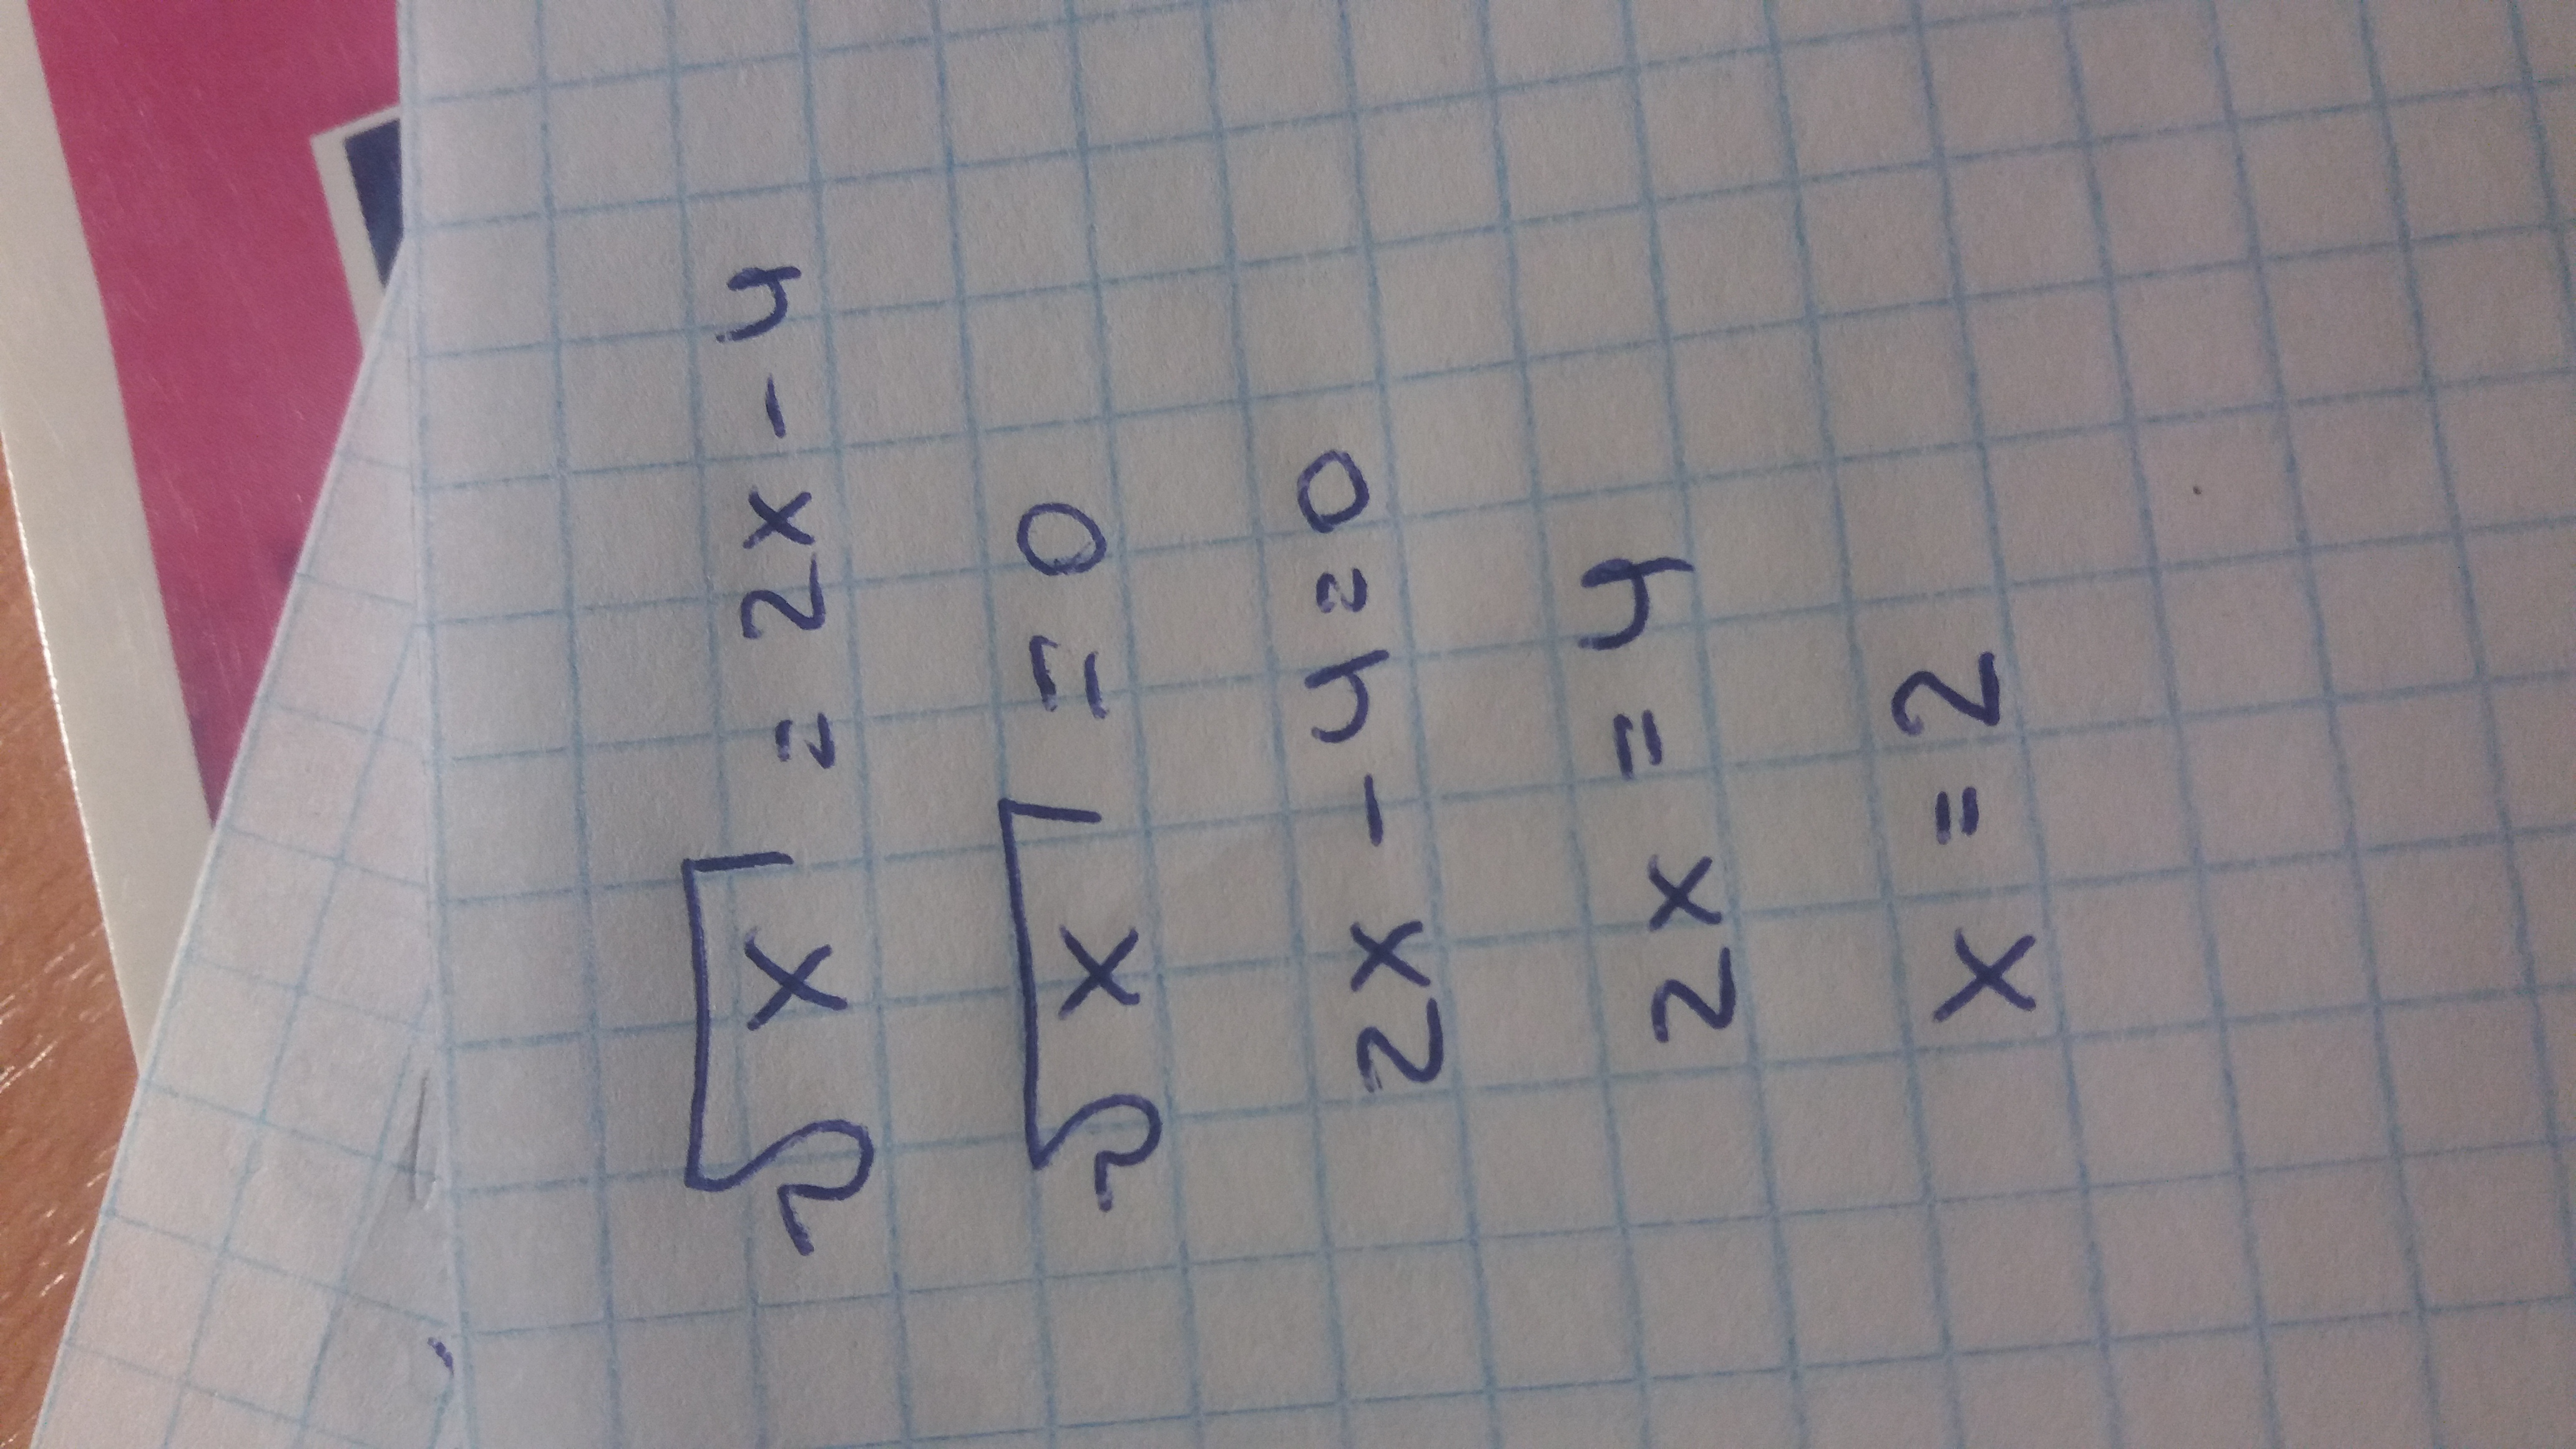 √x = 2x - 4
√x = 0
2x - 4 = 0
2x = 4
x = 2